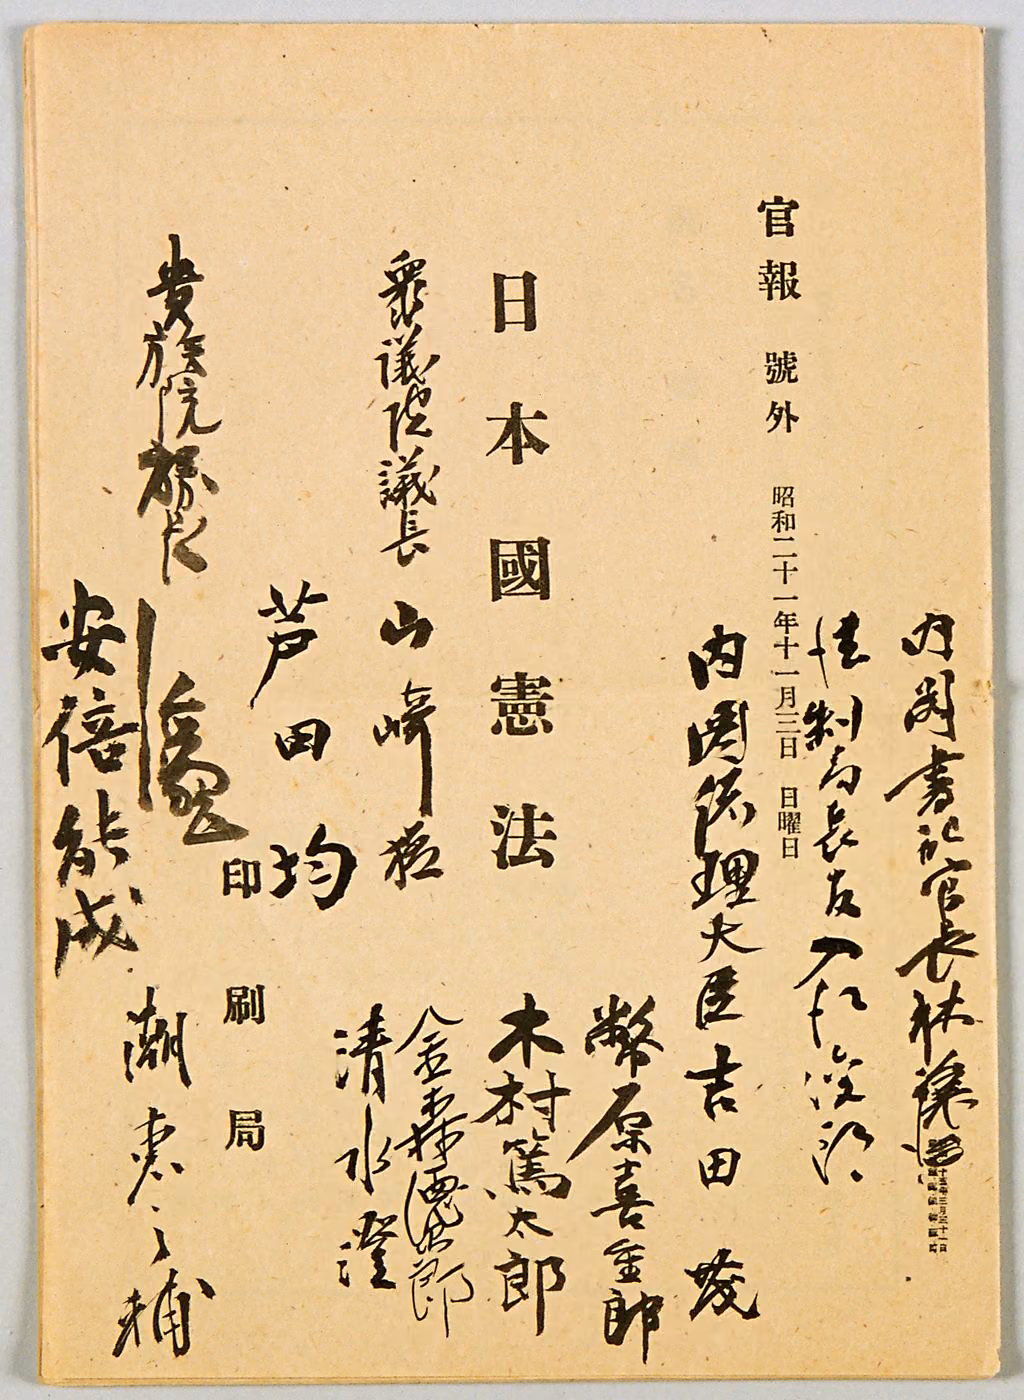 内閣書記官長 林 譲治
法制局長官 入江俊郎
官報 號外 昭和二十一年十一月三日 日曜日
内閣総理大臣 吉田 茂
幣原喜重郎
日本國憲法
木村篤太郎
金森徳次郎
衆議院議長 山崎猛
清水澄
芦田均
印刷局
貴族院議長
潮恵之輔
安倍能成